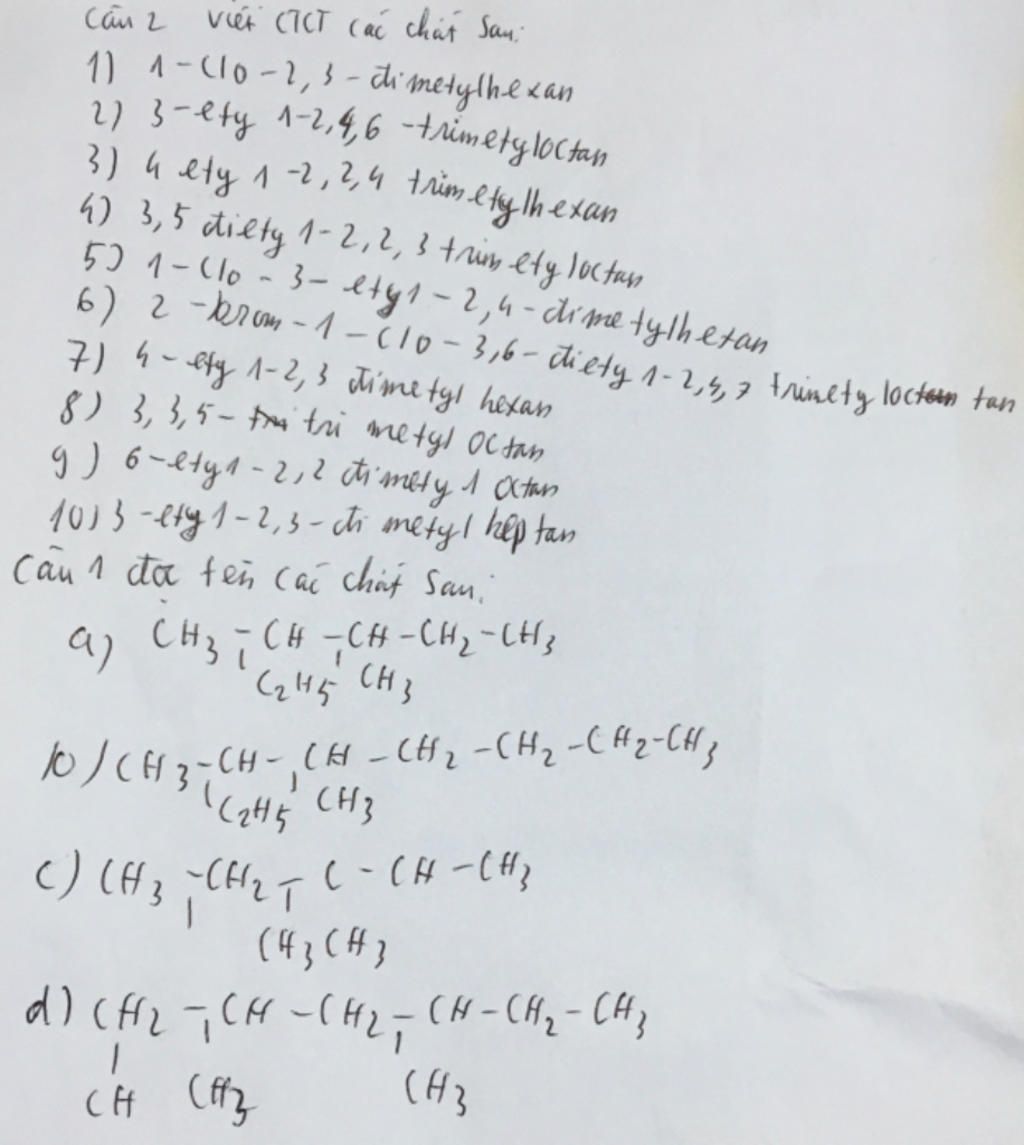 Câu 2 viết CTCT các chất sau:
1) 1-Clo-2,3-đimetylhexan
2) 3-ety 1-2,4,6-trimetyloctan
3) 4 ety 1-2,2,4 trimetylhexan
4) 3,5 đietyl-2,2,3 trimetyloctan
5) 1-Clo-3-etyl-2,4-đimetylhexan
6) 2-brom-1-Clo-3,6-đietyl-2,5,7 trimetyloctan
7) 4-etyl-2,3 đimetyl hexan
8) 3,3,5-tri metyl octan
9) 6-etyl-2,2 đimetyl octan
10) 3-etyl-2,3-đi metyl heptan
Câu 1 đọc tên các chất sau:
a) CH3-CH-CH-CH2-CH3
C2H5 CH3
b) CH3-CH-CH-CH2-CH2-CH2-CH3
C2H5 CH3
c) CH3-CH2-C-CH-CH3
CH3 CH3
d) CH2-CH-CH2-CH-CH2-CH3
CH CH3 CH3